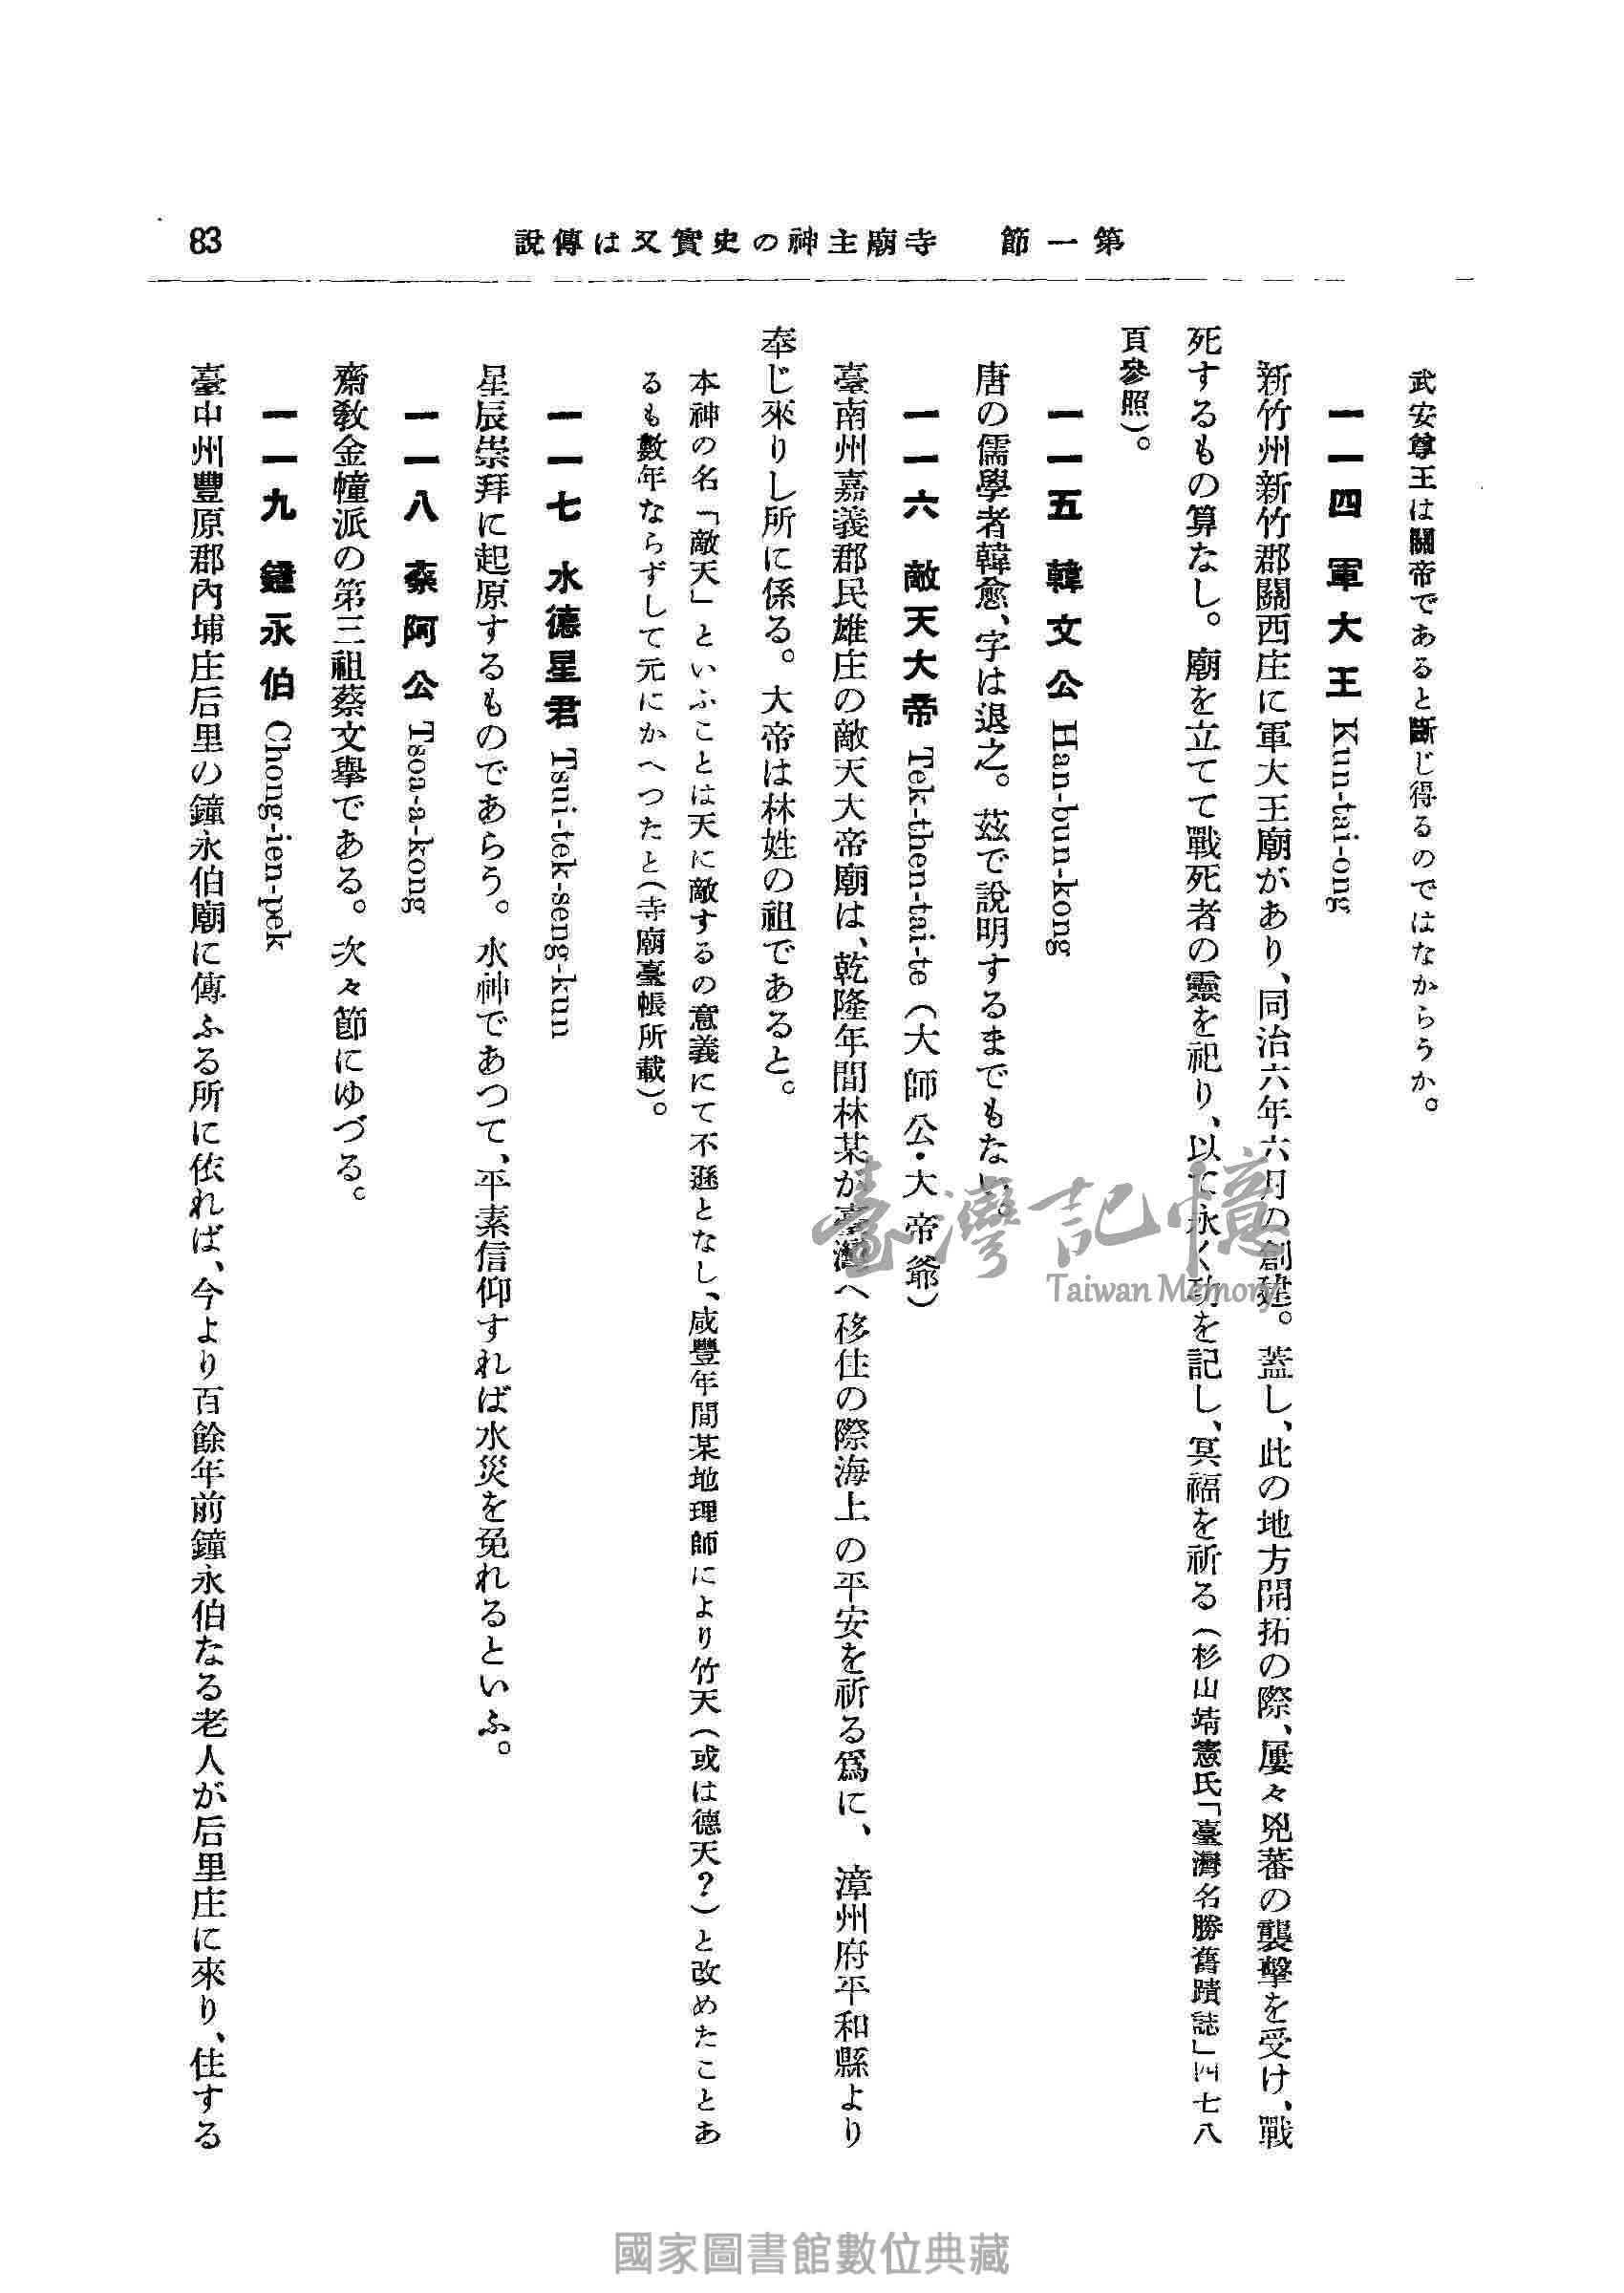 第一節　寺廟主神の史實又は傳說
83
武安尊王は關帝であると斷じ得るのではなからうか。
一一四　軍大王 Kun-tai-ong
新竹州新竹郡關西庄に軍大王廟があり、同治六年六月の創建。蓋し、此の地方開拓の際、屢々兇蕃の襲擊を受け、戰
死するもの算なし。廟を立てて戰死者の靈を祀り、以て永く功を記し、冥福を祈る（杉山靖憲氏「臺灣名勝舊蹟誌」四七八
頁參照）。
一一五　韓文公 Han-bun-kong
唐の儒學者韓愈、字は退之。茲で說明するまでもない。
一一六　敵天大帝 Tek-then-tai-te（大師公・大帝爺）
臺南州嘉義郡民雄庄の敵天大帝廟は、乾隆年間林某が臺灣へ移住の際海上の平安を祈る爲に、漳州府平和縣より
奉じ來りし所に係る。大帝は林姓の祖であると。
本神の名「敵天」といふことは天に敵するの意義にて不遜となし、咸豐年間某地理師により竹天（或は德天？）と改めたことあ
るも數年ならずして元にかへつたと（寺廟臺帳所載）。
一一七　水德星君 Tsui-tek-seng-kun
星辰崇拜に起原するものであらう。水神であつて、平素信仰すれば水災を免れるといふ。
一一八　蔡阿公 Tsoa-a-kong
齋敎金幢派の第三祖蔡文擧である。次々節にゆづる。
一一九　鐘永伯 Chong-ien-pek
臺中州豐原郡內埔庄后里の鐘永伯廟に傳ふる所に依れば、今より百餘年前鐘永伯なる老人が后里庄に來り、住する
臺灣記憶
Taiwan Memory
國家圖書館數位典藏